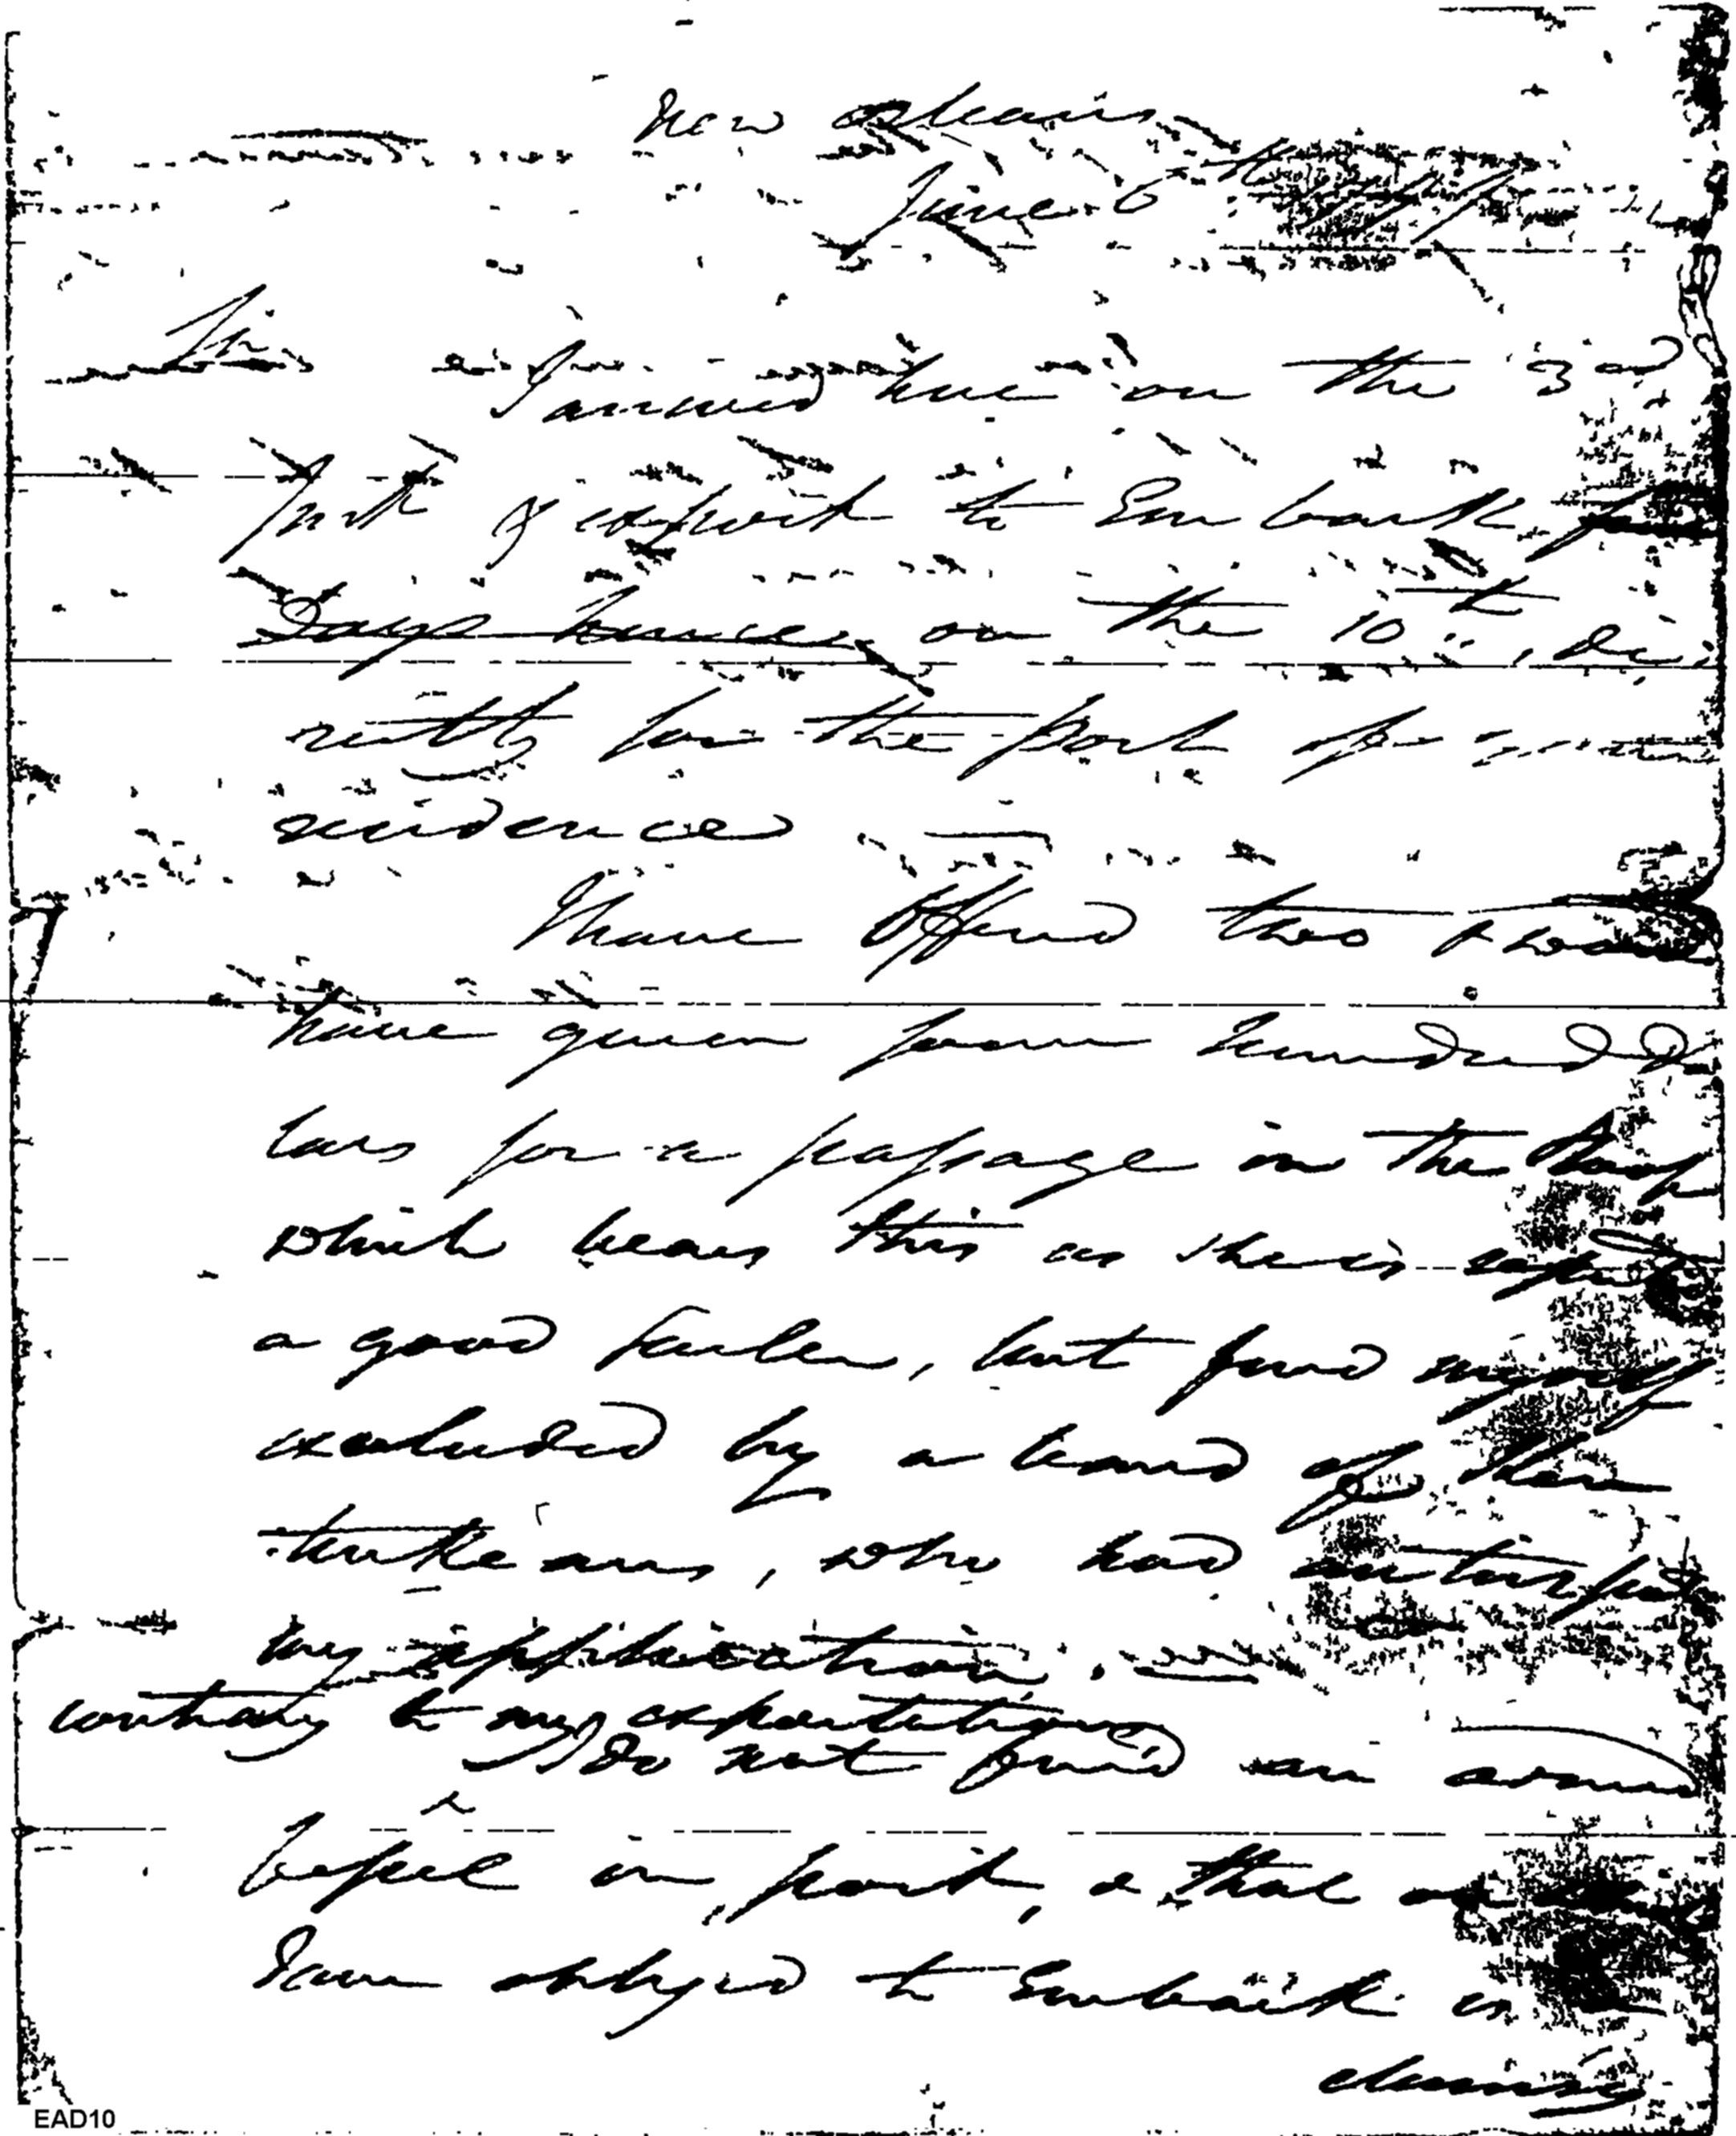 New Orleans
June 6th
Sir
I arrived here on the 3rd
Inst & expect to Embark
Days hence on the 10th, Di
rectly for the port of
residence
I have offered two & would
have given four hundred Dol
lars for a passage in the Sloop
which bears this as she is reputed
a good sailer, but find myself
excluded by a band of these
, who had anticipated
my application.
contrary to my expectations
I do not find an armed
Vessel in port, & that
I am obliged to Embark in a
clumsy
EAD10